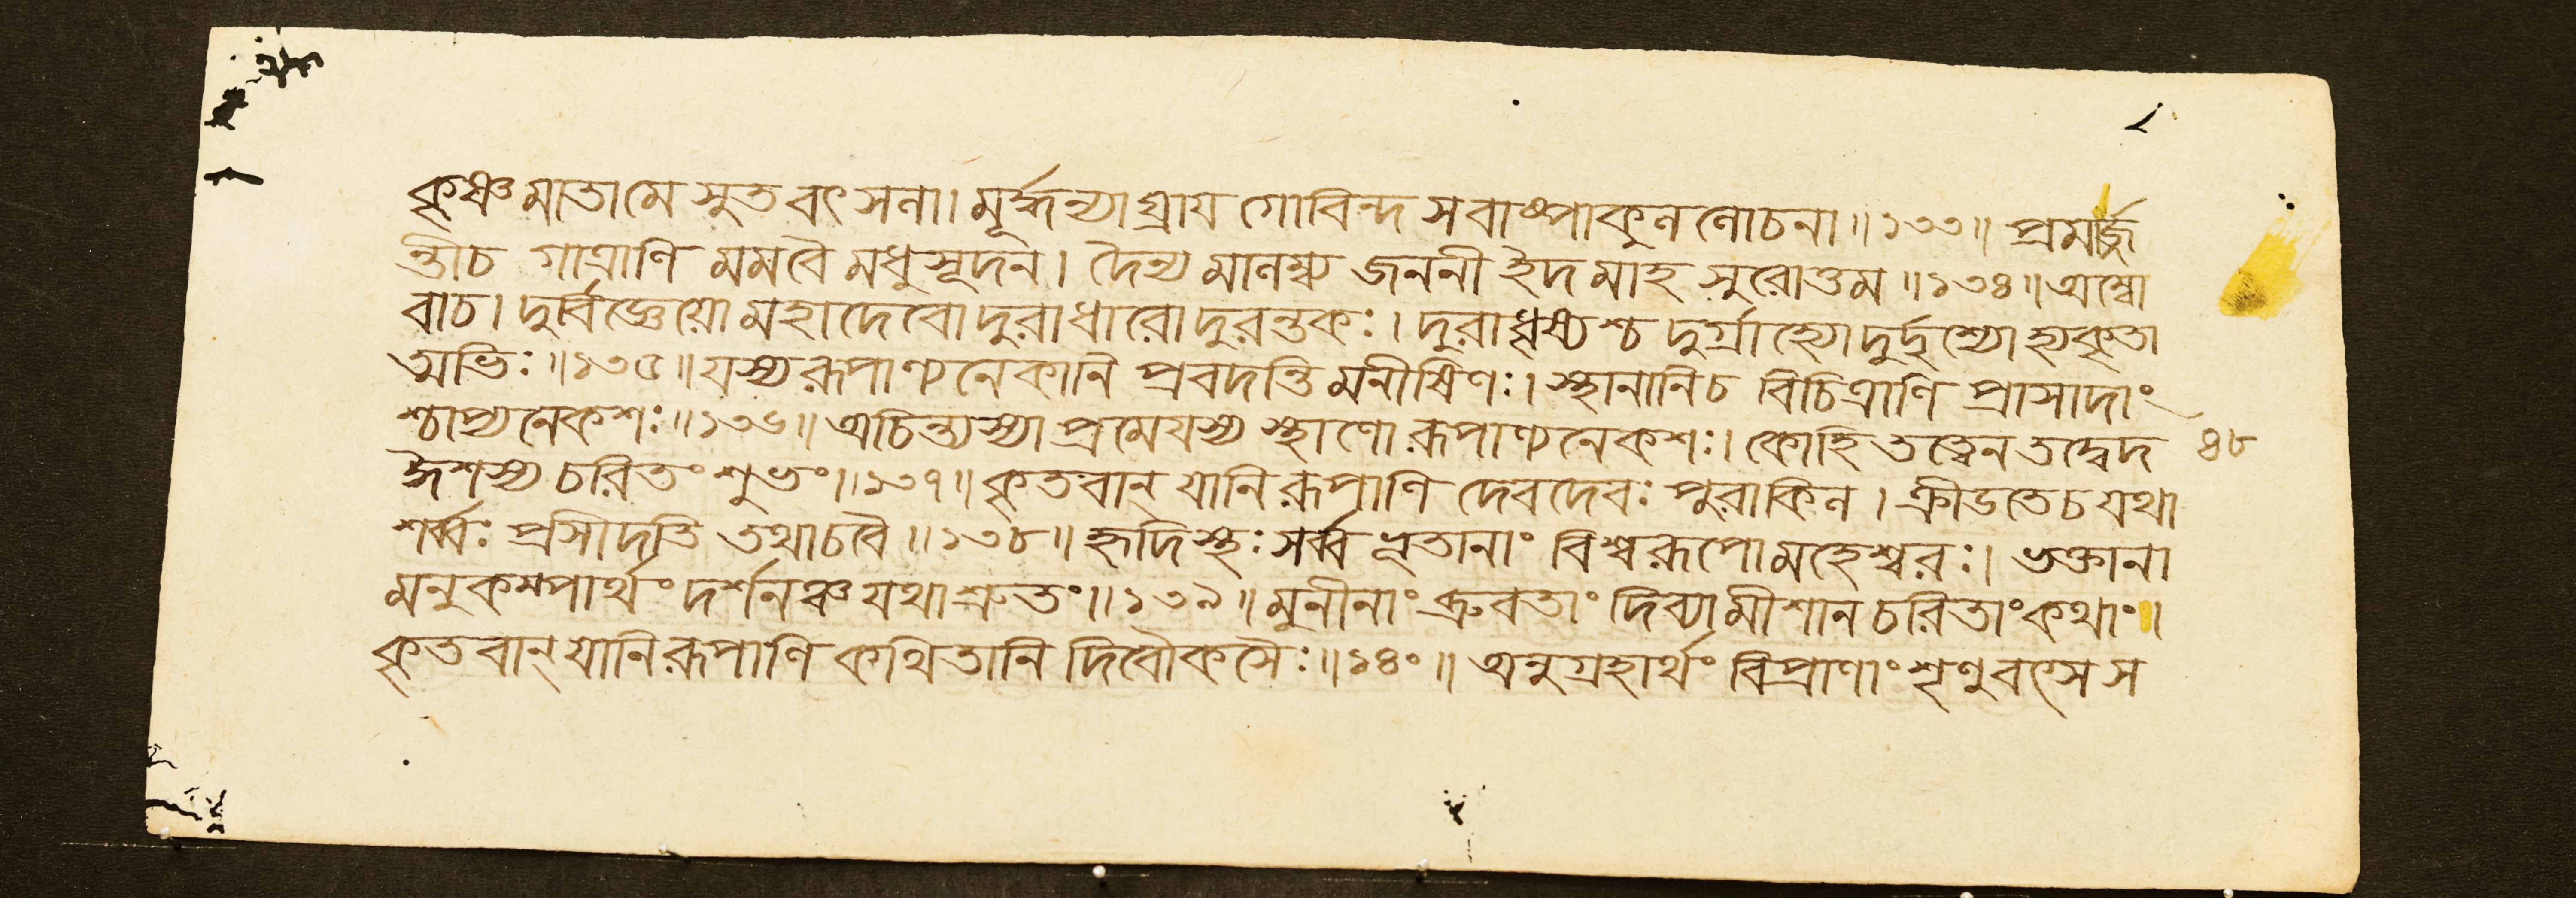 কৃষ্ণ মাতা মে সুত বৎসলা। মূর্দ্ধন্যাঘ্রায গোবিন্দ সবাষ্পাকুললোচনা॥১৩৩॥ প্রমার্জ্জ
ন্তীচ গাত্রাণি মমবৈ মধুসূদন। দৈন্য মানম্ব্য জননী ইদমাহ সুরোত্তম॥১৩৪॥ অম্বো
বাচ। দুর্বিজ্ঞেয়ো মহাদেবো দুরাধারো দুরন্তকঃ। দুরাধৃষ্যশ্চ দুর্গ্রাহ্যো দুর্দৃশ্যো হ্যকৃতা
অভিঃ॥১৩৫॥ যস্য রূপাণ্যনেকানি প্রবদন্তি মনীষিণঃ। স্থানানিচ বিচিত্রাণি প্রাসাদাং
শ্চাপ্যনেকশঃ॥১৩৬॥ অচিন্ত্যস্যাপ্রমেযস্য স্থাণো রূপাণ্যনেকশঃ। কোহি তত্ত্বেন তদ্বেদ
ঈশস্য চরিতং শুভং॥১৩৭॥ কৃতবান্ যানি রূপাণি দেবদেবঃ পুরাকিল। ক্রীডতেচ যথা
শর্ব্বঃ প্রসীদতি তথাচবৈ॥১৩৮॥ হৃদিস্থঃ সর্ব্বভূতানাং বিশ্বরূপো মহেশ্বরঃ। ভক্তানা
মনুকম্পার্থং দর্শনঞ্চ যথাশ্রুতং॥১৩৯॥ মুনীনাং ব্রুবতাং দিব্যামীশানচরিতাং কথাং।
কৃতবান্ যানি রূপাণি কথিতানি দিবৌকসৈঃ॥১৪০॥ অনুগ্রহার্থং বিপ্রাণাং শৃণু বৎসে স
৪৮